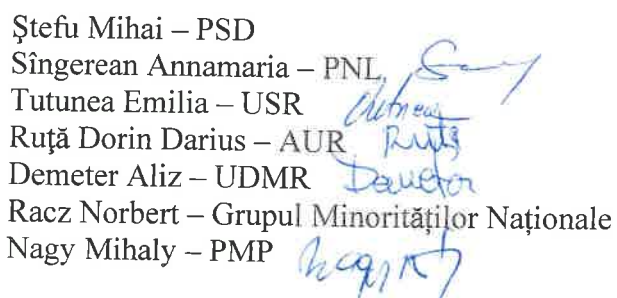 Ștefu Mihai – PSD
Sîngerean Annamaria – PNL
Tutunea Emilia – USR
Ruţă Dorin Darius – AUR Ruță
Demeter Aliz – UDMR Demeter
Racz Norbert – Grupul Minorităților Naționale
Nagy Mihaly – PMP